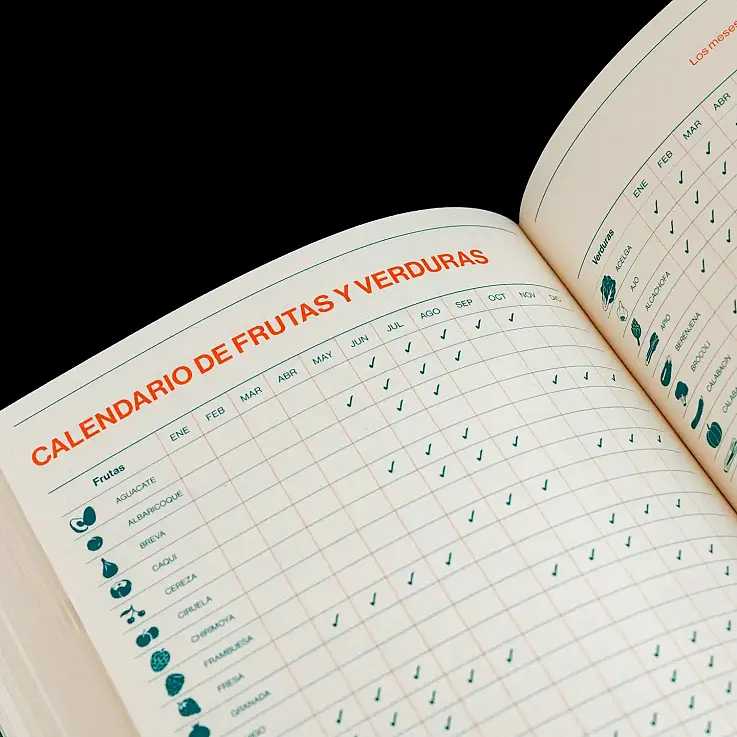 CALENDARIO DE FRUTAS Y VERDURAS
Frutas ENE FEB MAR ABR MAY JUN JUL AGO SEP OCT NOV DIC
AGUACATE
ALBARICOQUE
BREVA
CAQUI
CEREZA
CIRUELA
CHIRIMOYA
FRAMBUESA
FRESA
GRANADA
Los meses
Verduras ENE FEB MAR ABR
ACELGA
AJO
ALCACHOFA
APIO
BERENJENA
BRÓCOLI
CALABACÍN